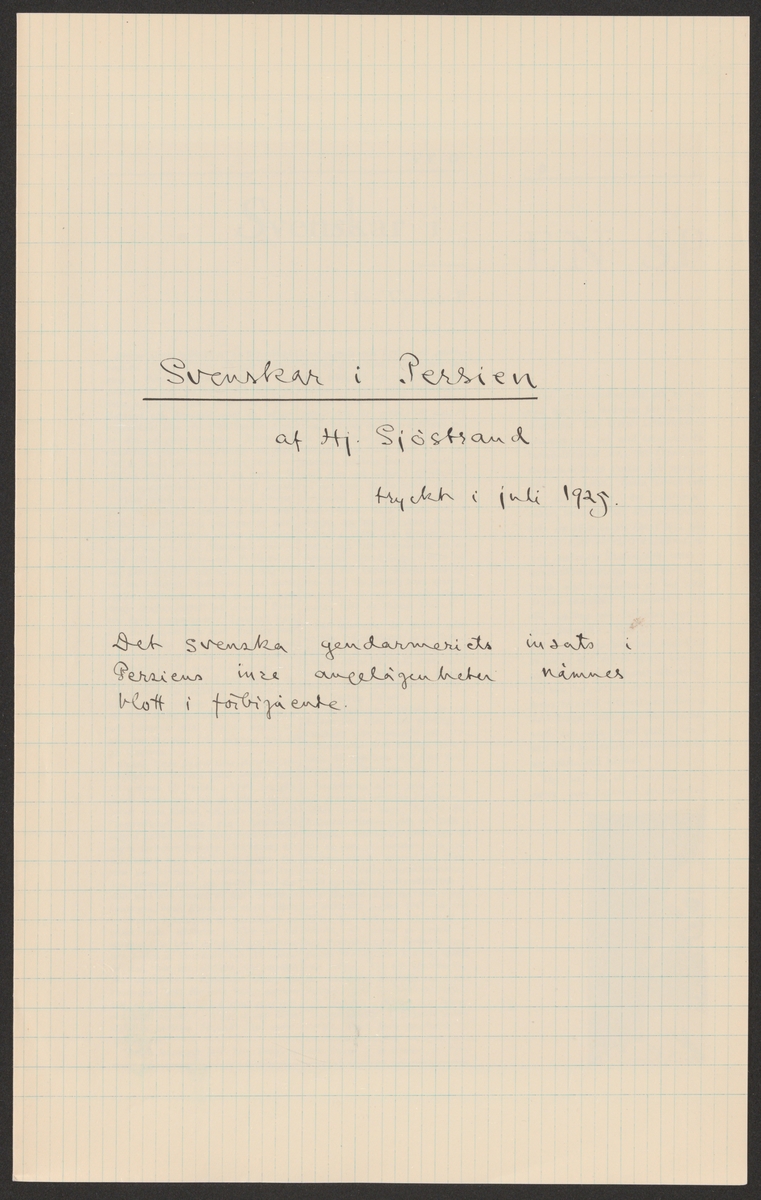 Svenskar i Persien
af Hj. Sjöstrand
tryckt i juli 1925.
Det svenska gendarmeriets insats i
Persiens inre angelägenheter nämnes
blott i förbigående.